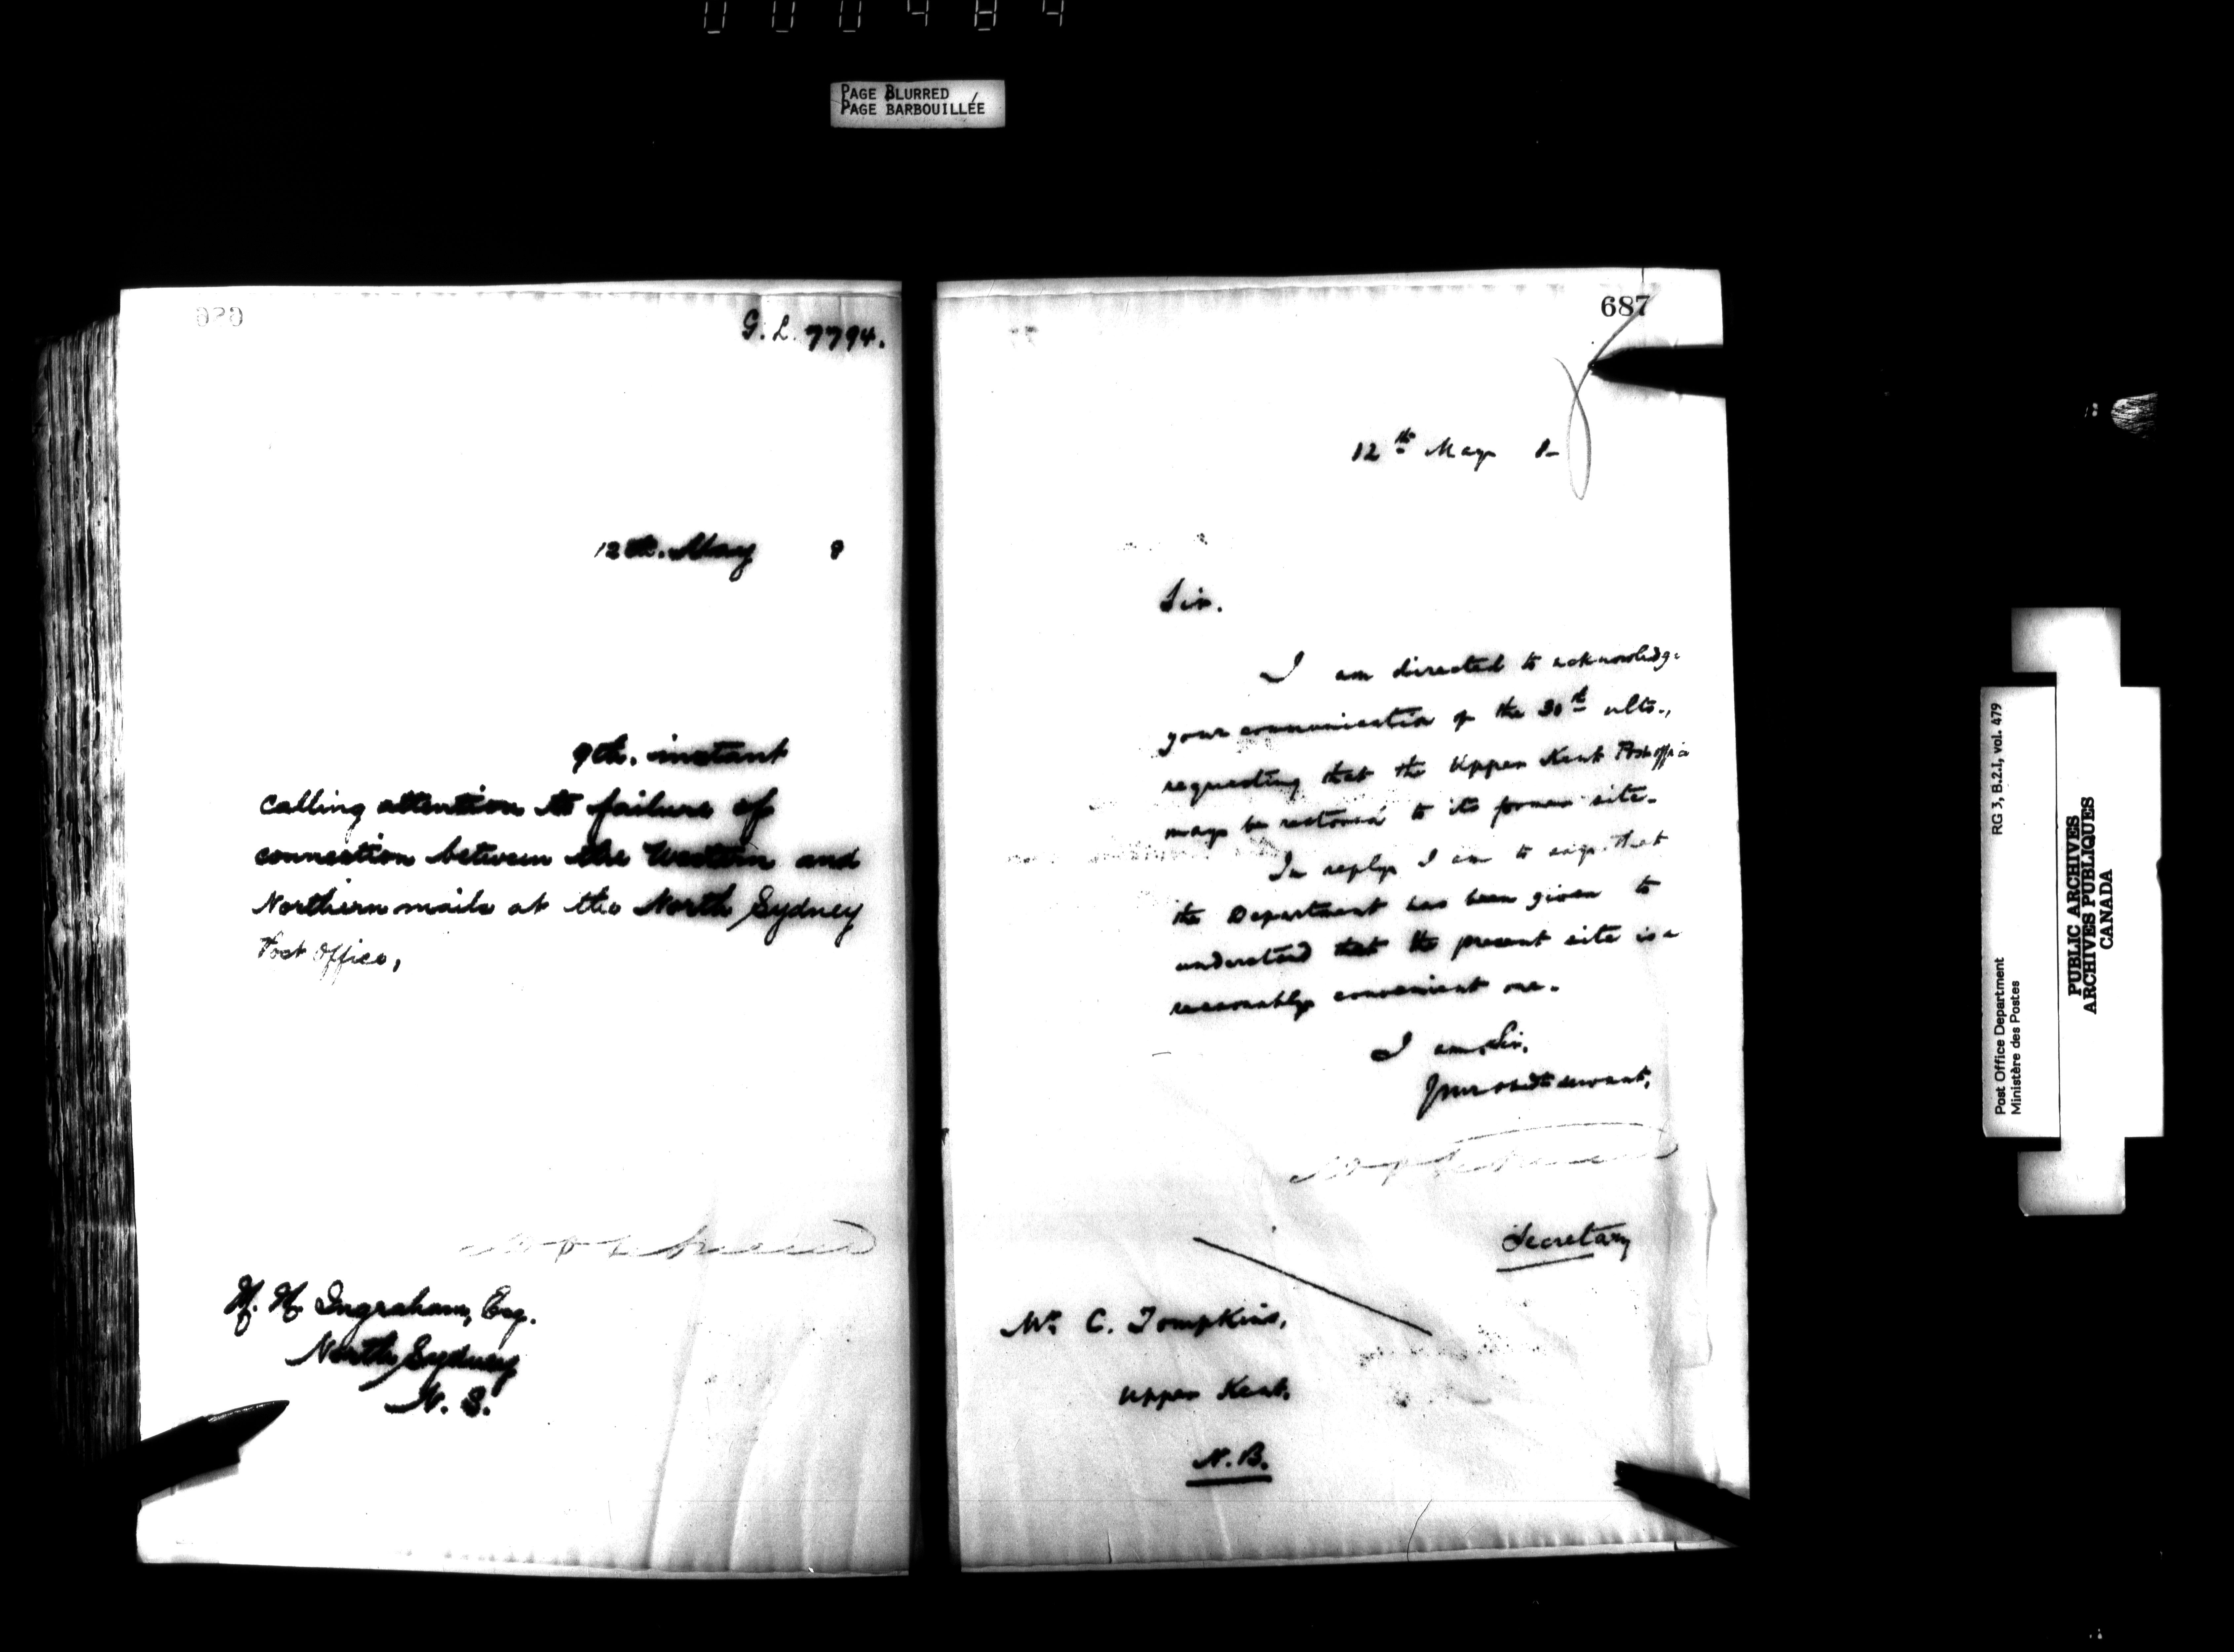 000484
PAGE BLURRED
PAGE BARBOUILLÉE
G. L. 7794.
12th. May 8
9th. instant
calling attention to failure of
connection between the Western and
Northern mails at the North Sydney
Post Office,
H. H. Ingraham, Esq.
North Sydney
N. S.
687
12th May 8
Sir.
I am directed to acknowledge
your communication of the 30th ulto.,
requesting that the Upper Kent Post office
may be restored to its former site.
In reply I am to say that
the Department has been given to
understand that the present site is a
reasonably convenient one.
I am, Sir,
Your obedt. servant,
Secretary
Mr. C. Tompkins,
Upper Kent,
N. B.
Post Office Department RG 3, B.2.I, vol. 479
Ministère des Postes
PUBLIC ARCHIVES
ARCHIVES PUBLIQUES
CANADA